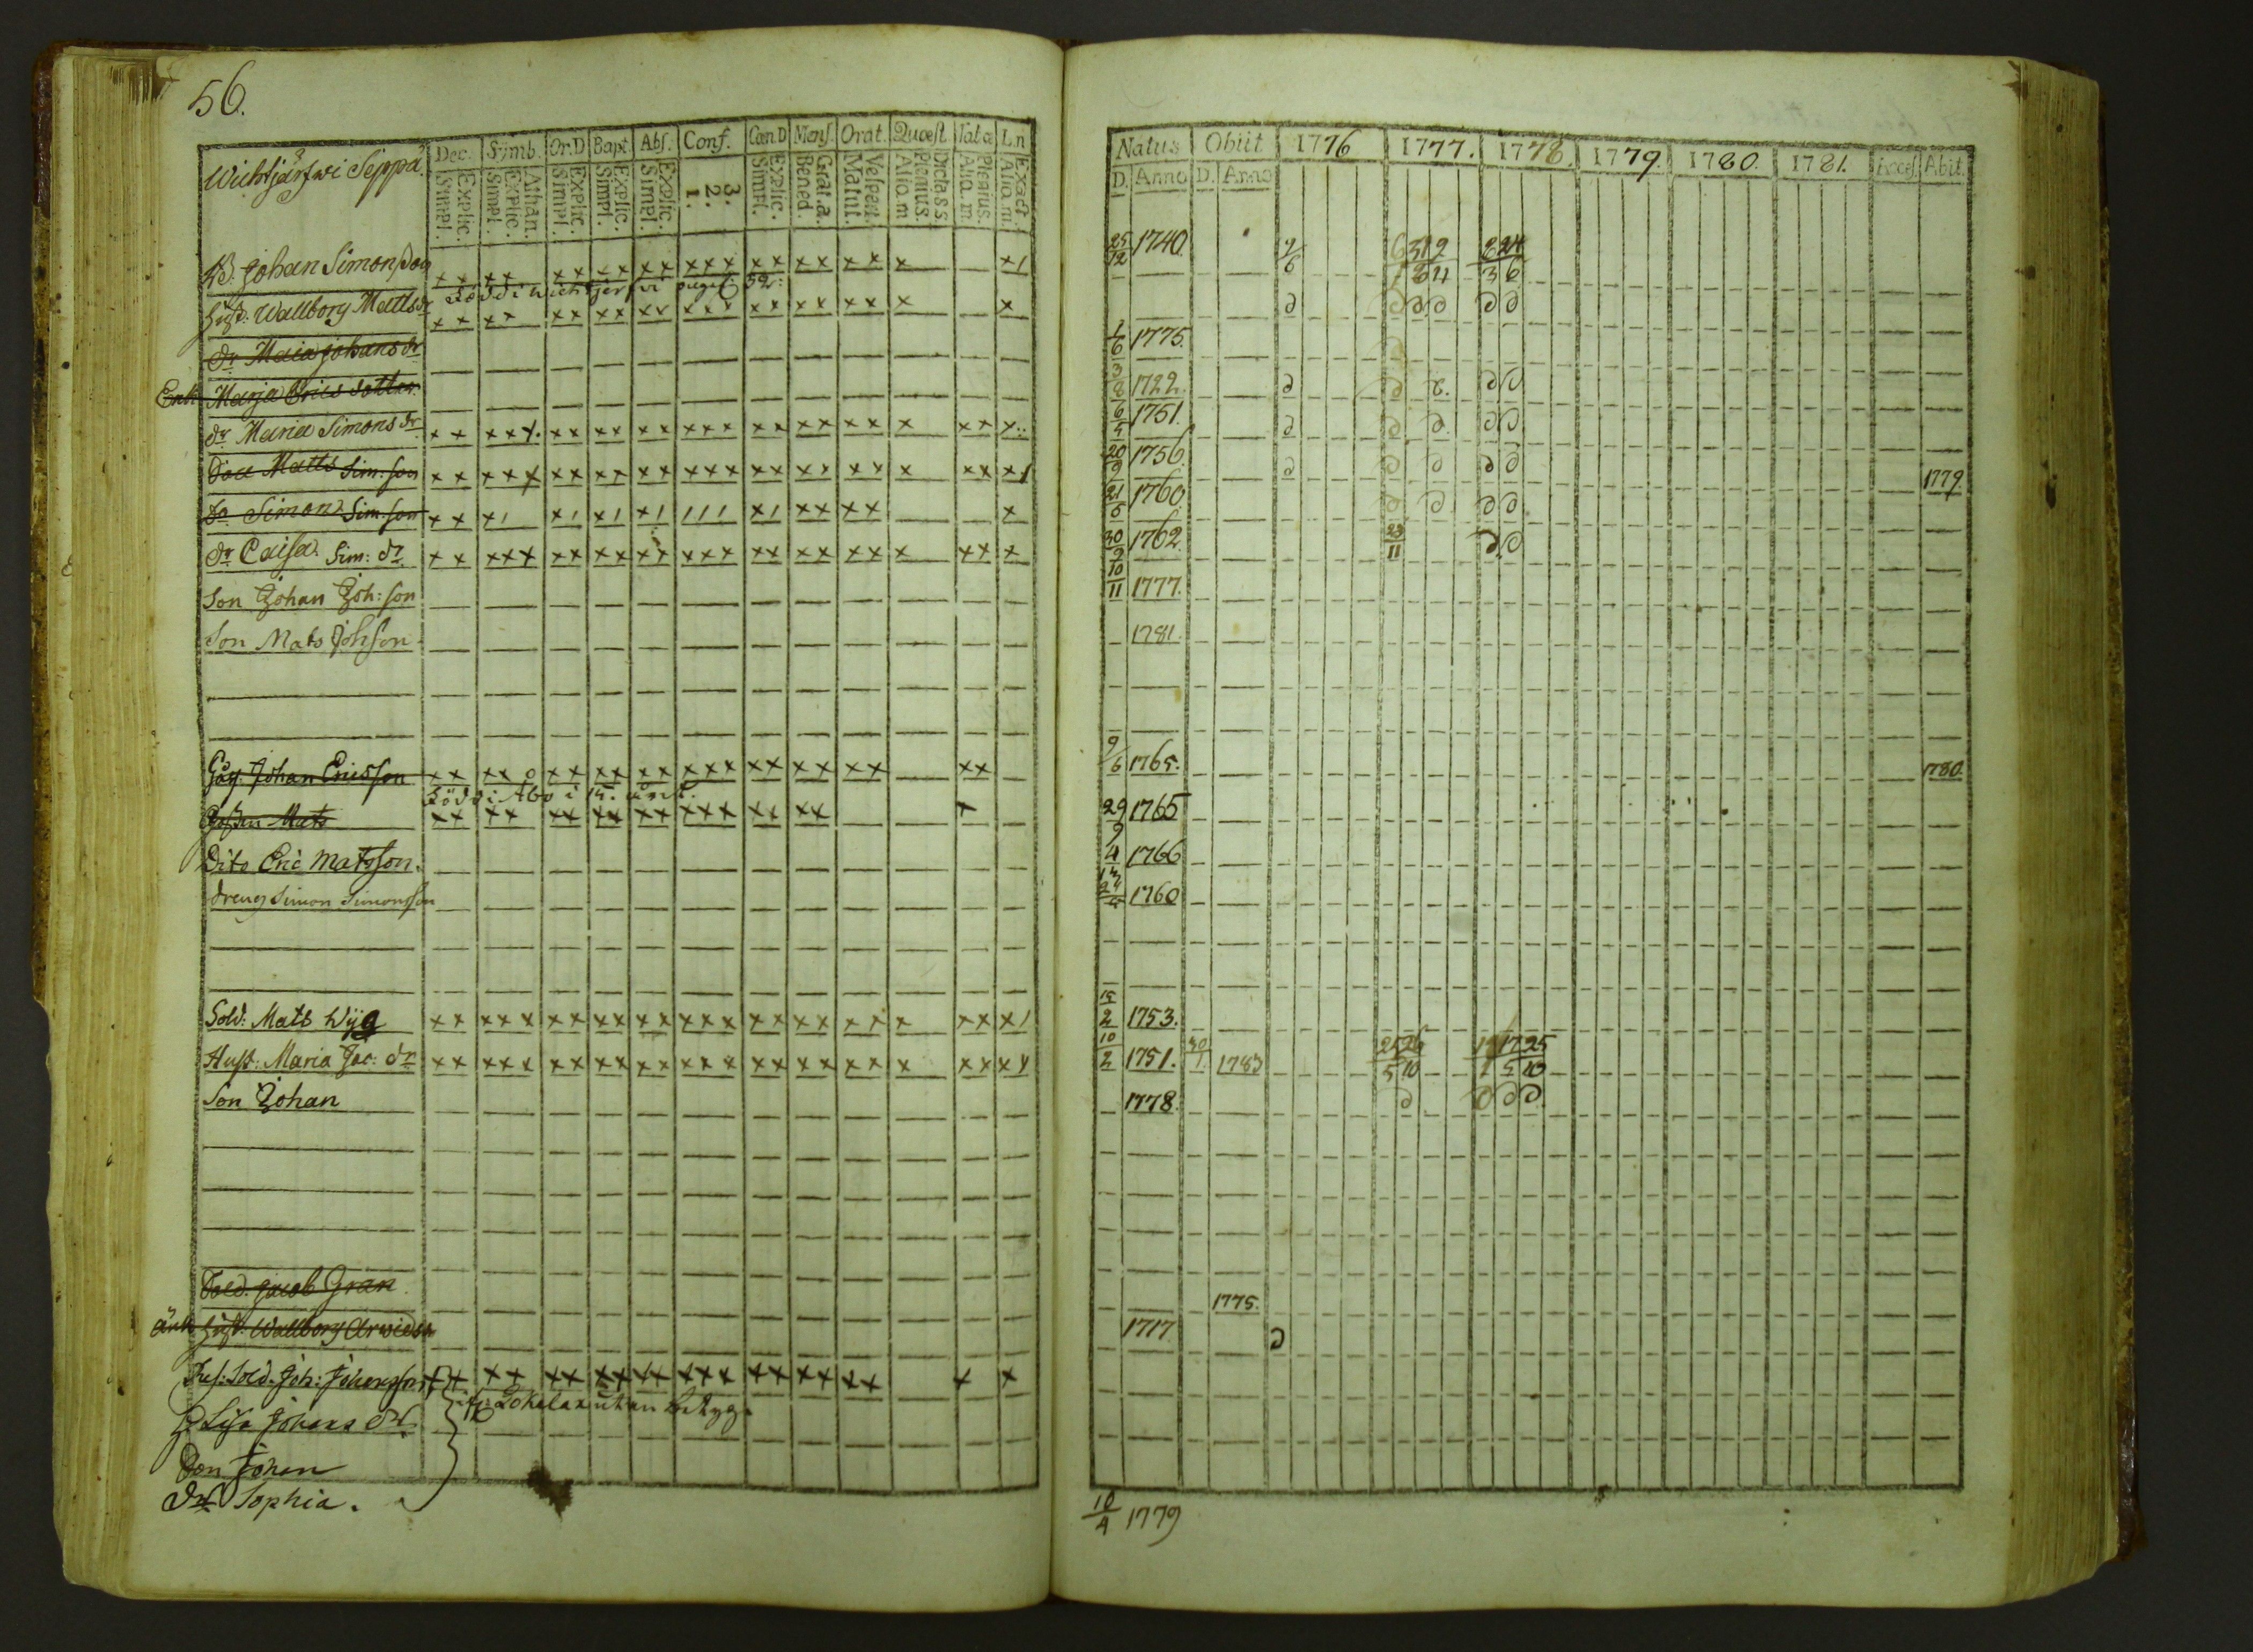 56.
Wichtjärfwi Seppä.
Dec. Symb. Or.D Bapt. Abs. Conf. Cœn.D Mens. Orat. Quæst. Tabæ L.n
Simpl. Explic. Simpl. Explic. Athan. Simpl. Explic. Simpl. Explic. Simpl. Explic. 1. 2. 3. Simpl. Explic. Bened. Grat.a. Matut. Vespert. Aliq.m Plenius. Dictas s. Aliq.m. Plenius. Aliq.m. Exact.
Johan Simonsson
Född i Wichtjerfwi
Hust: Wallborg Matts dr
dr Maia Johans dr
Enk. Marja Erics dotter
dr Maria Simons dr
Matts Sim: son
do Simon Sim: son
dr Caisa Sim: dr
Son Johan Joh: son
Son Mats Johson
Johan Ericsson
Född i Åbo i
Gossen Mats
Dito Eric Matsson.
dreng Simon Simonsson
Sold: Mats
Hust: Maria Jac: dr
Son Johan
Sold. Jacob Gran
änk. Hust. Wallborg Arwieds
Sold. Joh: Johansson
Lisa Johans dr. utan betyg.
Son Johan
Dr Sophia.
Natus Obiit 1776 1777. 1778. 1779. 1780. 1781. Acces. Abit.
D. Anno D. Anno
25/12 1740. 9/6 6 31 9 2 24
1 3 4 3 6
1/6 1775.
3/8 1722.
6/5 1751.
20/9 1756. 1779
21/5 1760.
30/9 1762. 23/11
10/11 1777.
1781.
9/6 1765. 1780.
29/9 1765
4 1766
1760
15/2 1753.
10/2 1751. 30/1 1783 25 26 17 25
5 10 1 5 10
1778.
1775.
1717
10/4 1779